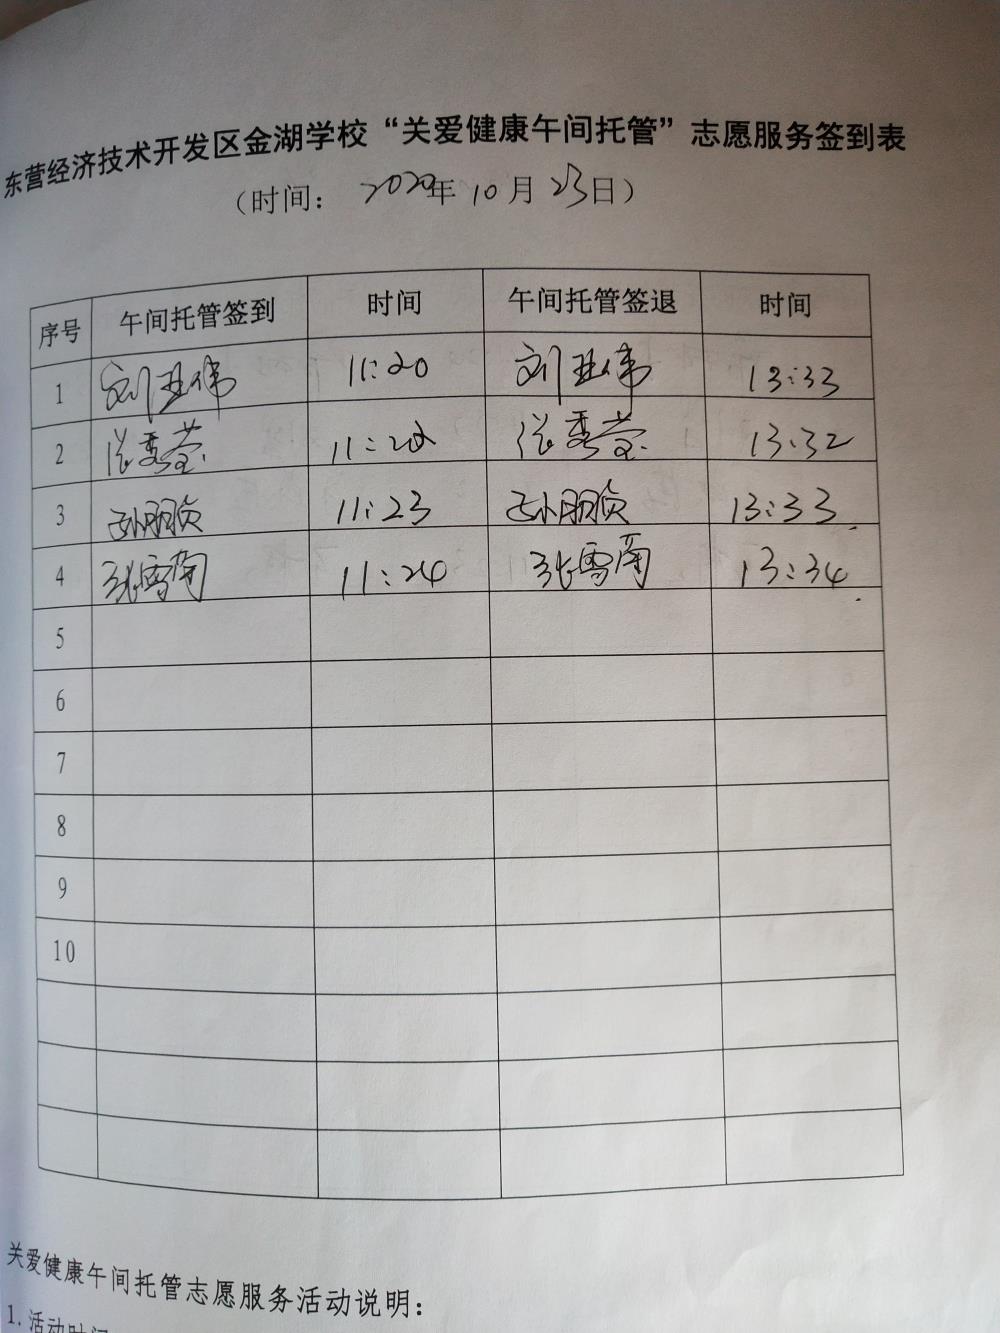 东营经济技术开发区金湖学校“关爱健康午间托管”志愿服务签到表
（时间： 2020年 10月 23日）
序号 午间托管签到 时间 午间托管签退 时间
1 刘亚伟 11:20 刘亚伟 13:33
2 张秀莹 张秀莹 13:32
3 孙朋贞 11:23 孙朋贞 13:33
4 张雪菊 11:24 张雪菊 13:34
5
6
7
8
9
10
关爱健康午间托管志愿服务活动说明：
1.活动时间